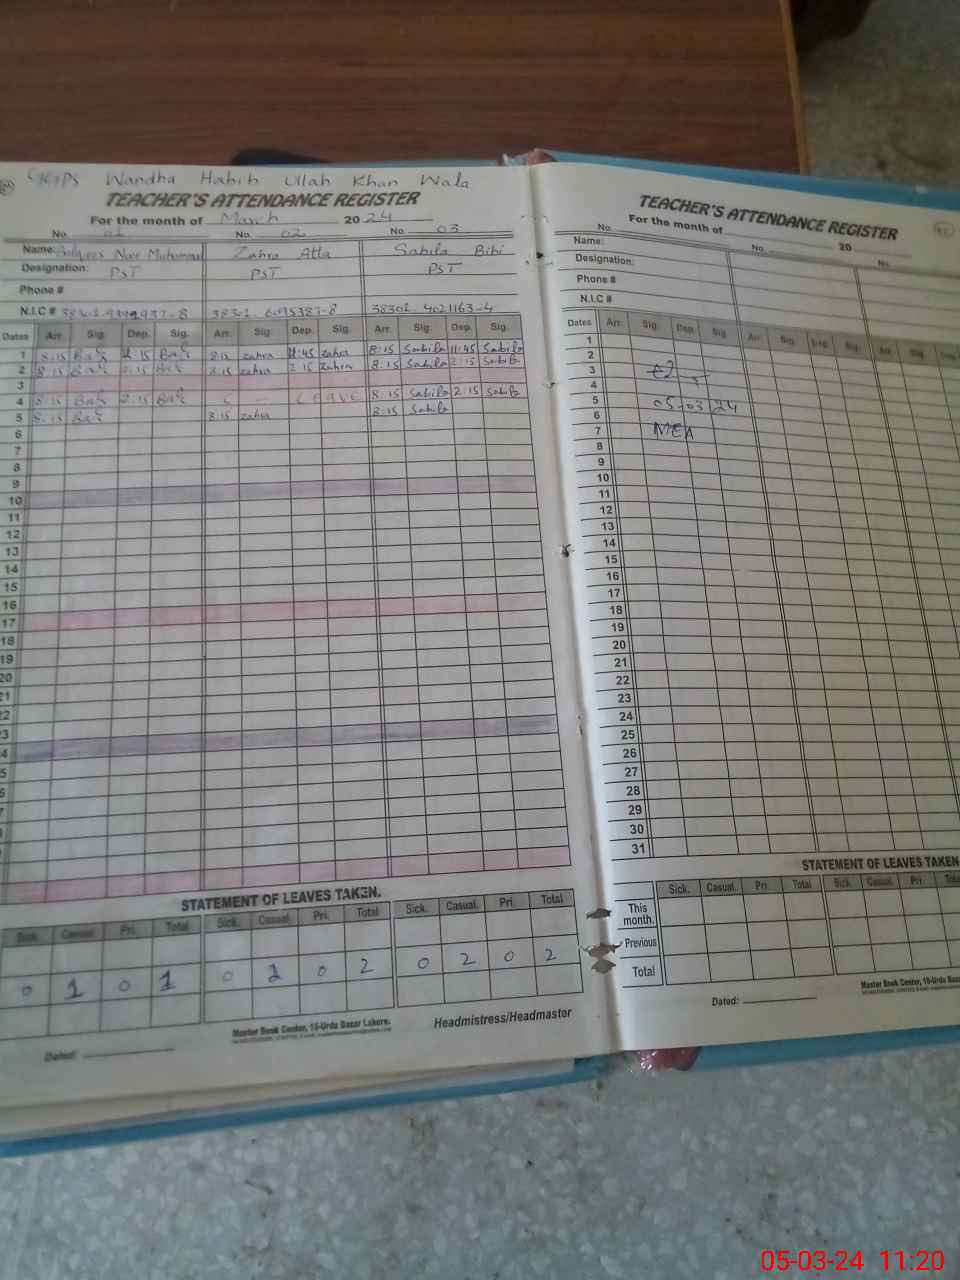 GGPS Wandha Habib Ullah Khan Wala
TEACHER'S ATTENDANCE REGISTER
For the month of March 2024
No. 01 No. 02 No. 03
Name: Noor Muhammad Zahra Atta Sabila Bibi
Designation: PST PST PST
Phone #
N.I.C # 38302-4021163-4
Dates Arr. Sig. Dep. Sig. Arr. Sig. Dep. Sig. Arr. Sig. Dep. Sig.
1 8:15 11:45 8:15 zahra 11:45 zahra 8:15 Sabila 11:45 Sabila
2 8:15 2:15 8:15 zahra 2:15 zahra 8:15 Sabila 2:15 Sabila
3
4 8:15 2:15 C - Leave 8:15 Sabila 2:15 Sabila
5 8:15 8:15 zahra 8:15 Sabila
6
7
8
9
10
11
12
13
14
15
16
17
18
19
20
21
22
23
STATEMENT OF LEAVES TAKEN.
Sick. Casual. Pri. Total Sick. Casual. Pri. Total Sick. Casual. Pri. Total
0 1 0 1 0 1 0 2 0 2 0 2
Master Book Center, 16-Urdu Bazar Lahore.
Headmistress/Headmaster
Dated:
TEACHER'S ATTENDANCE REGISTER
For the month of 20
No. No. No.
Name:
Designation:
Phone #
N.I.C #
Dates Arr. Sig. Dep. Sig. Arr. Sig. Dep. Sig. Arr. Sig.
1
2
3
4
5 05-03-24
6
7 MEA
8
9
10
11
12
13
14
15
16
17
18
19
20
21
22
23
24
25
26
27
28
29
30
31
STATEMENT OF LEAVES TAKEN
Sick. Casual. Pri. Total Sick. Casual. Pri. Total
This month.
Previous
Total
Dated:
Master Book Center, 16-Urdu Bazar
05-03-24 11:20